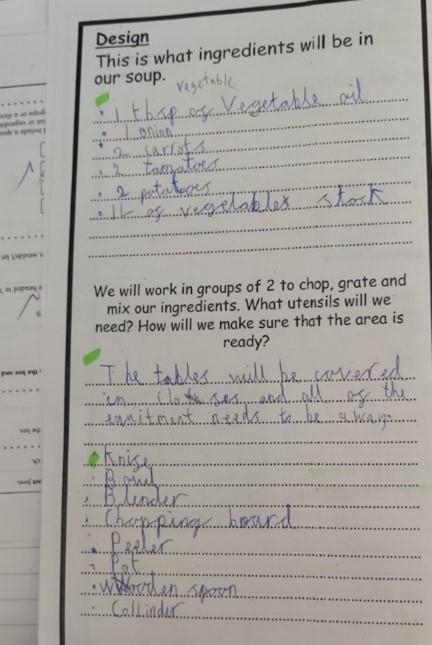 Design
This is what ingredients will be in
our soup.
vegetable
• 1 tbsp of Vegetable oil
• 1 onion
• 2 carrots
• 2 tomatoes
• 2 potatoes
• 1L of vegetables stock
We will work in groups of 2 to chop, grate and
mix our ingredients. What utensils will we
need? How will we make sure that the area is
ready?
The tables will be covered
in and all of the
equitment needs to be away.
• Knife
• Bowl
• Blender
• Chopping board
• Peeler
• Pot
• Wooden spoon
• Collinder